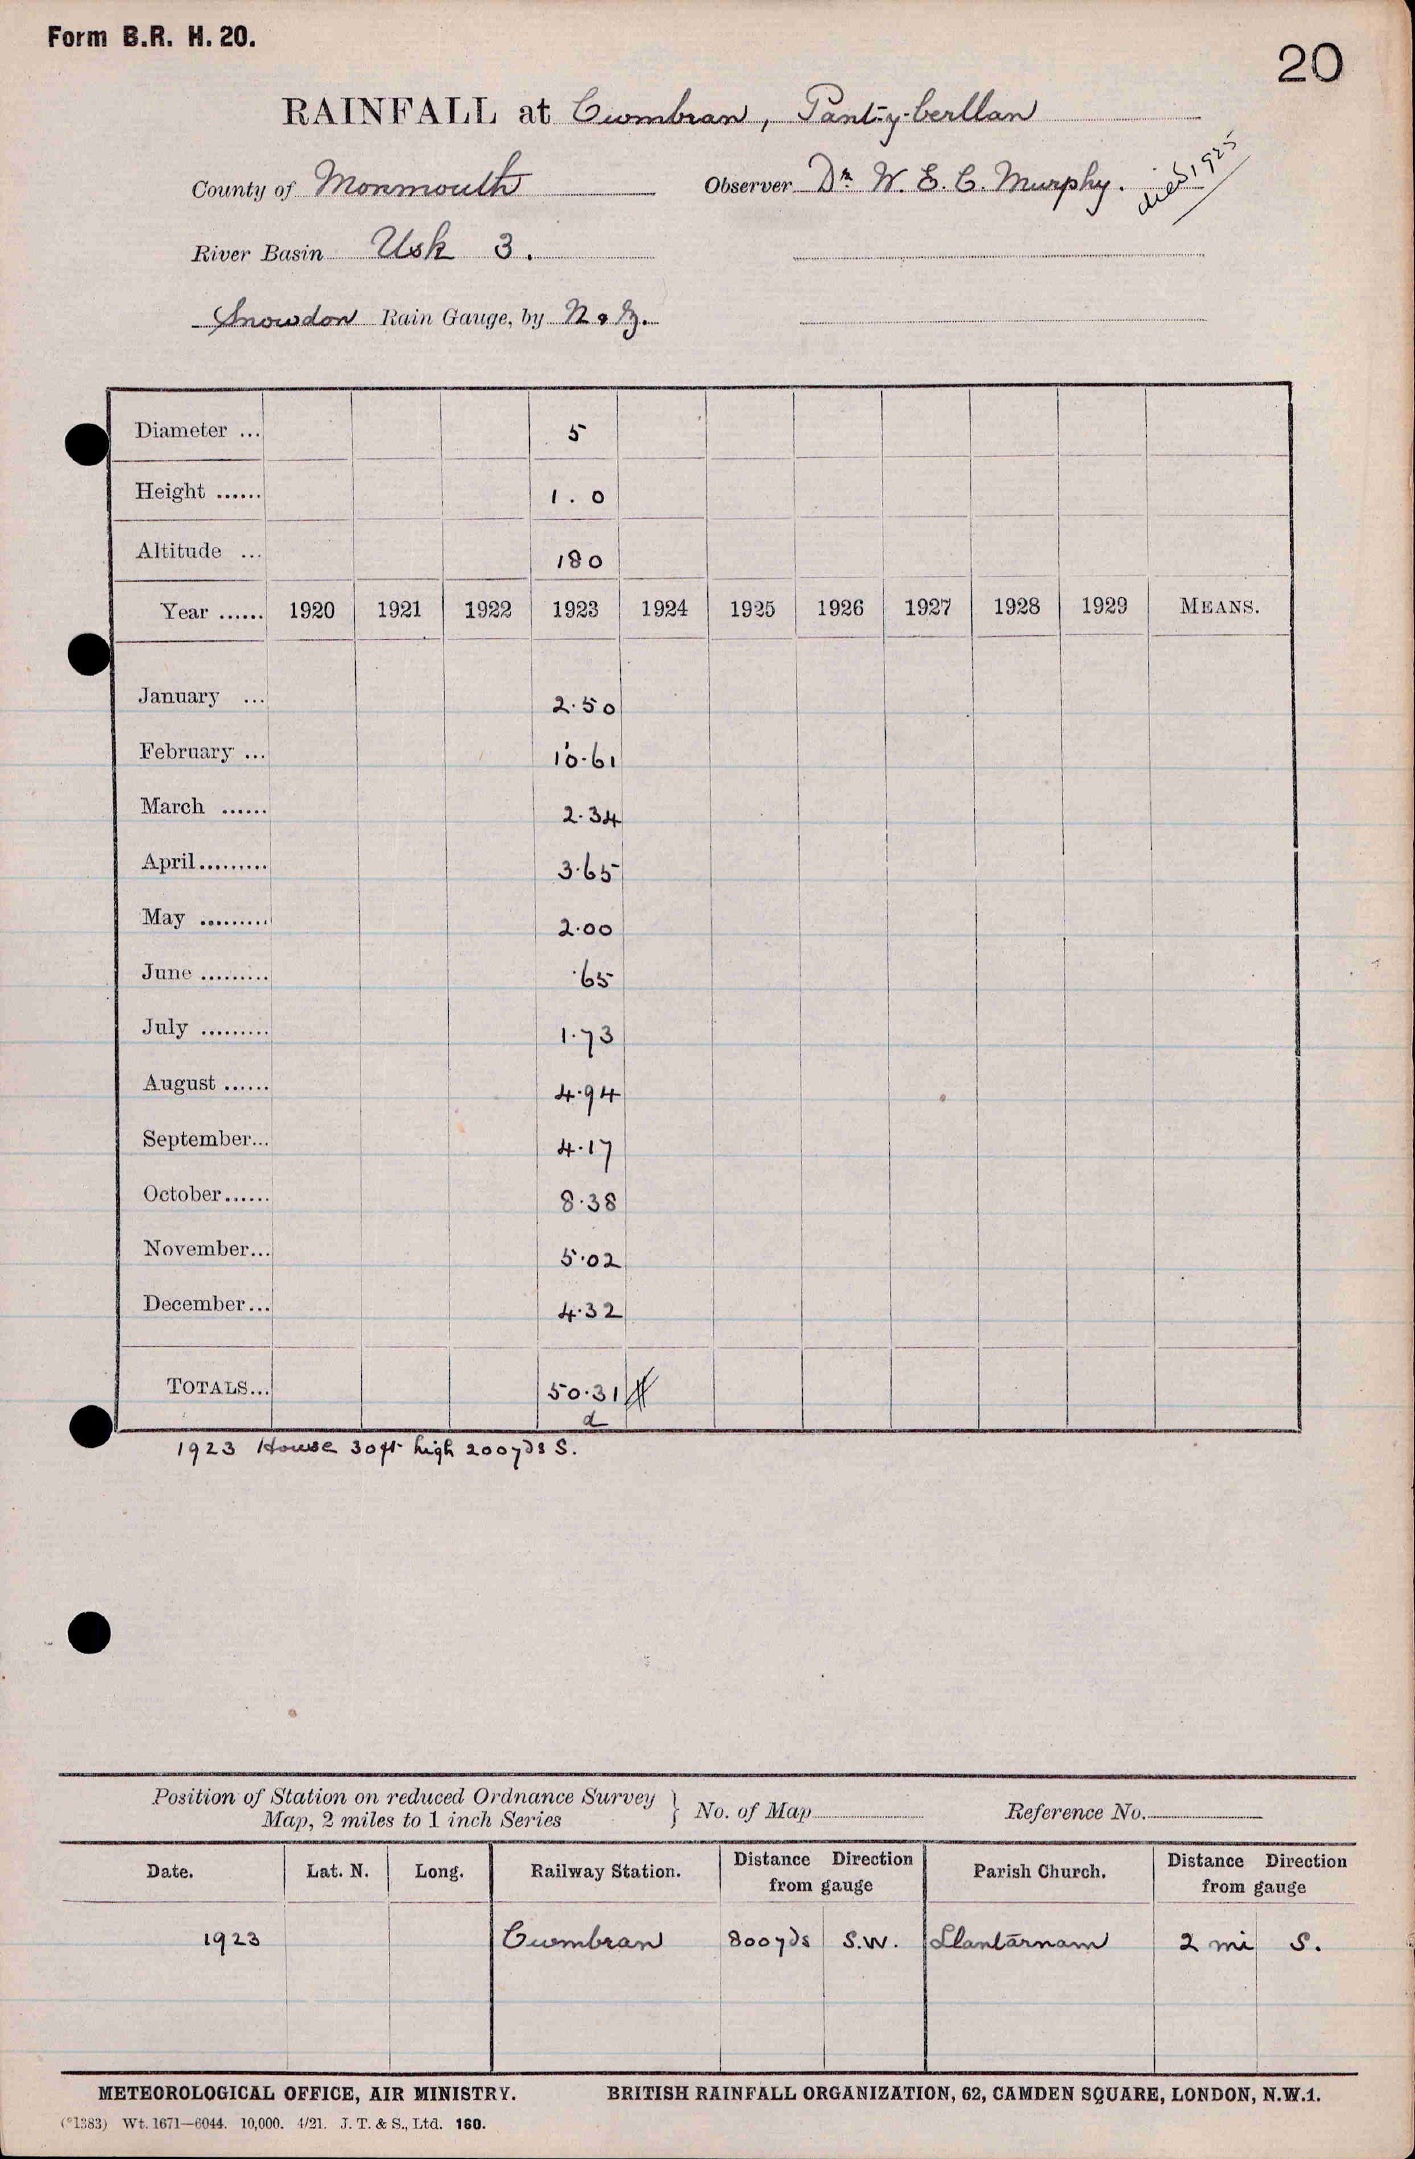 Form B.R. H. 20.
20
RAINFALL at Cwmbran, Pant-y-berllan
County of Monmouth Observer Dr. W. E. C. Murphy. died 1925
River Basin Usk 3.
Snowdon Rain Gauge, by N & Z.
Diameter ... 5
Height ...... 1.0
Altitude ... 180
Year ...... 1920 1921 1922 1923 1924 1925 1926 1927 1928 1929 MEANS.
January ... 2.50
February ... 10.61
March ...... 2.34
April......... 3.65
May ......... 2.00
June ......... .65
July ......... 1.73
August ...... 4.94
September... 4.17
October...... 8.38
November... 5.02
December... 4.32
TOTALS... 50.31
d
1923 House 30ft high 200yds S.
Position of Station on reduced Ordnance Survey
Map, 2 miles to 1 inch Series } No. of Map Reference No.
Date. Lat. N. Long. Railway Station. Distance Direction from gauge Parish Church. Distance Direction from gauge
1923 Cwmbran 800yds S.W. Llantarnam 2 mi S.
METEOROLOGICAL OFFICE, AIR MINISTRY. BRITISH RAINFALL ORGANIZATION, 62, CAMDEN SQUARE, LONDON, N.W.1.
(*1383) Wt. 1671—6044. 10,000. 4/21. J. T. & S., Ltd. 160.